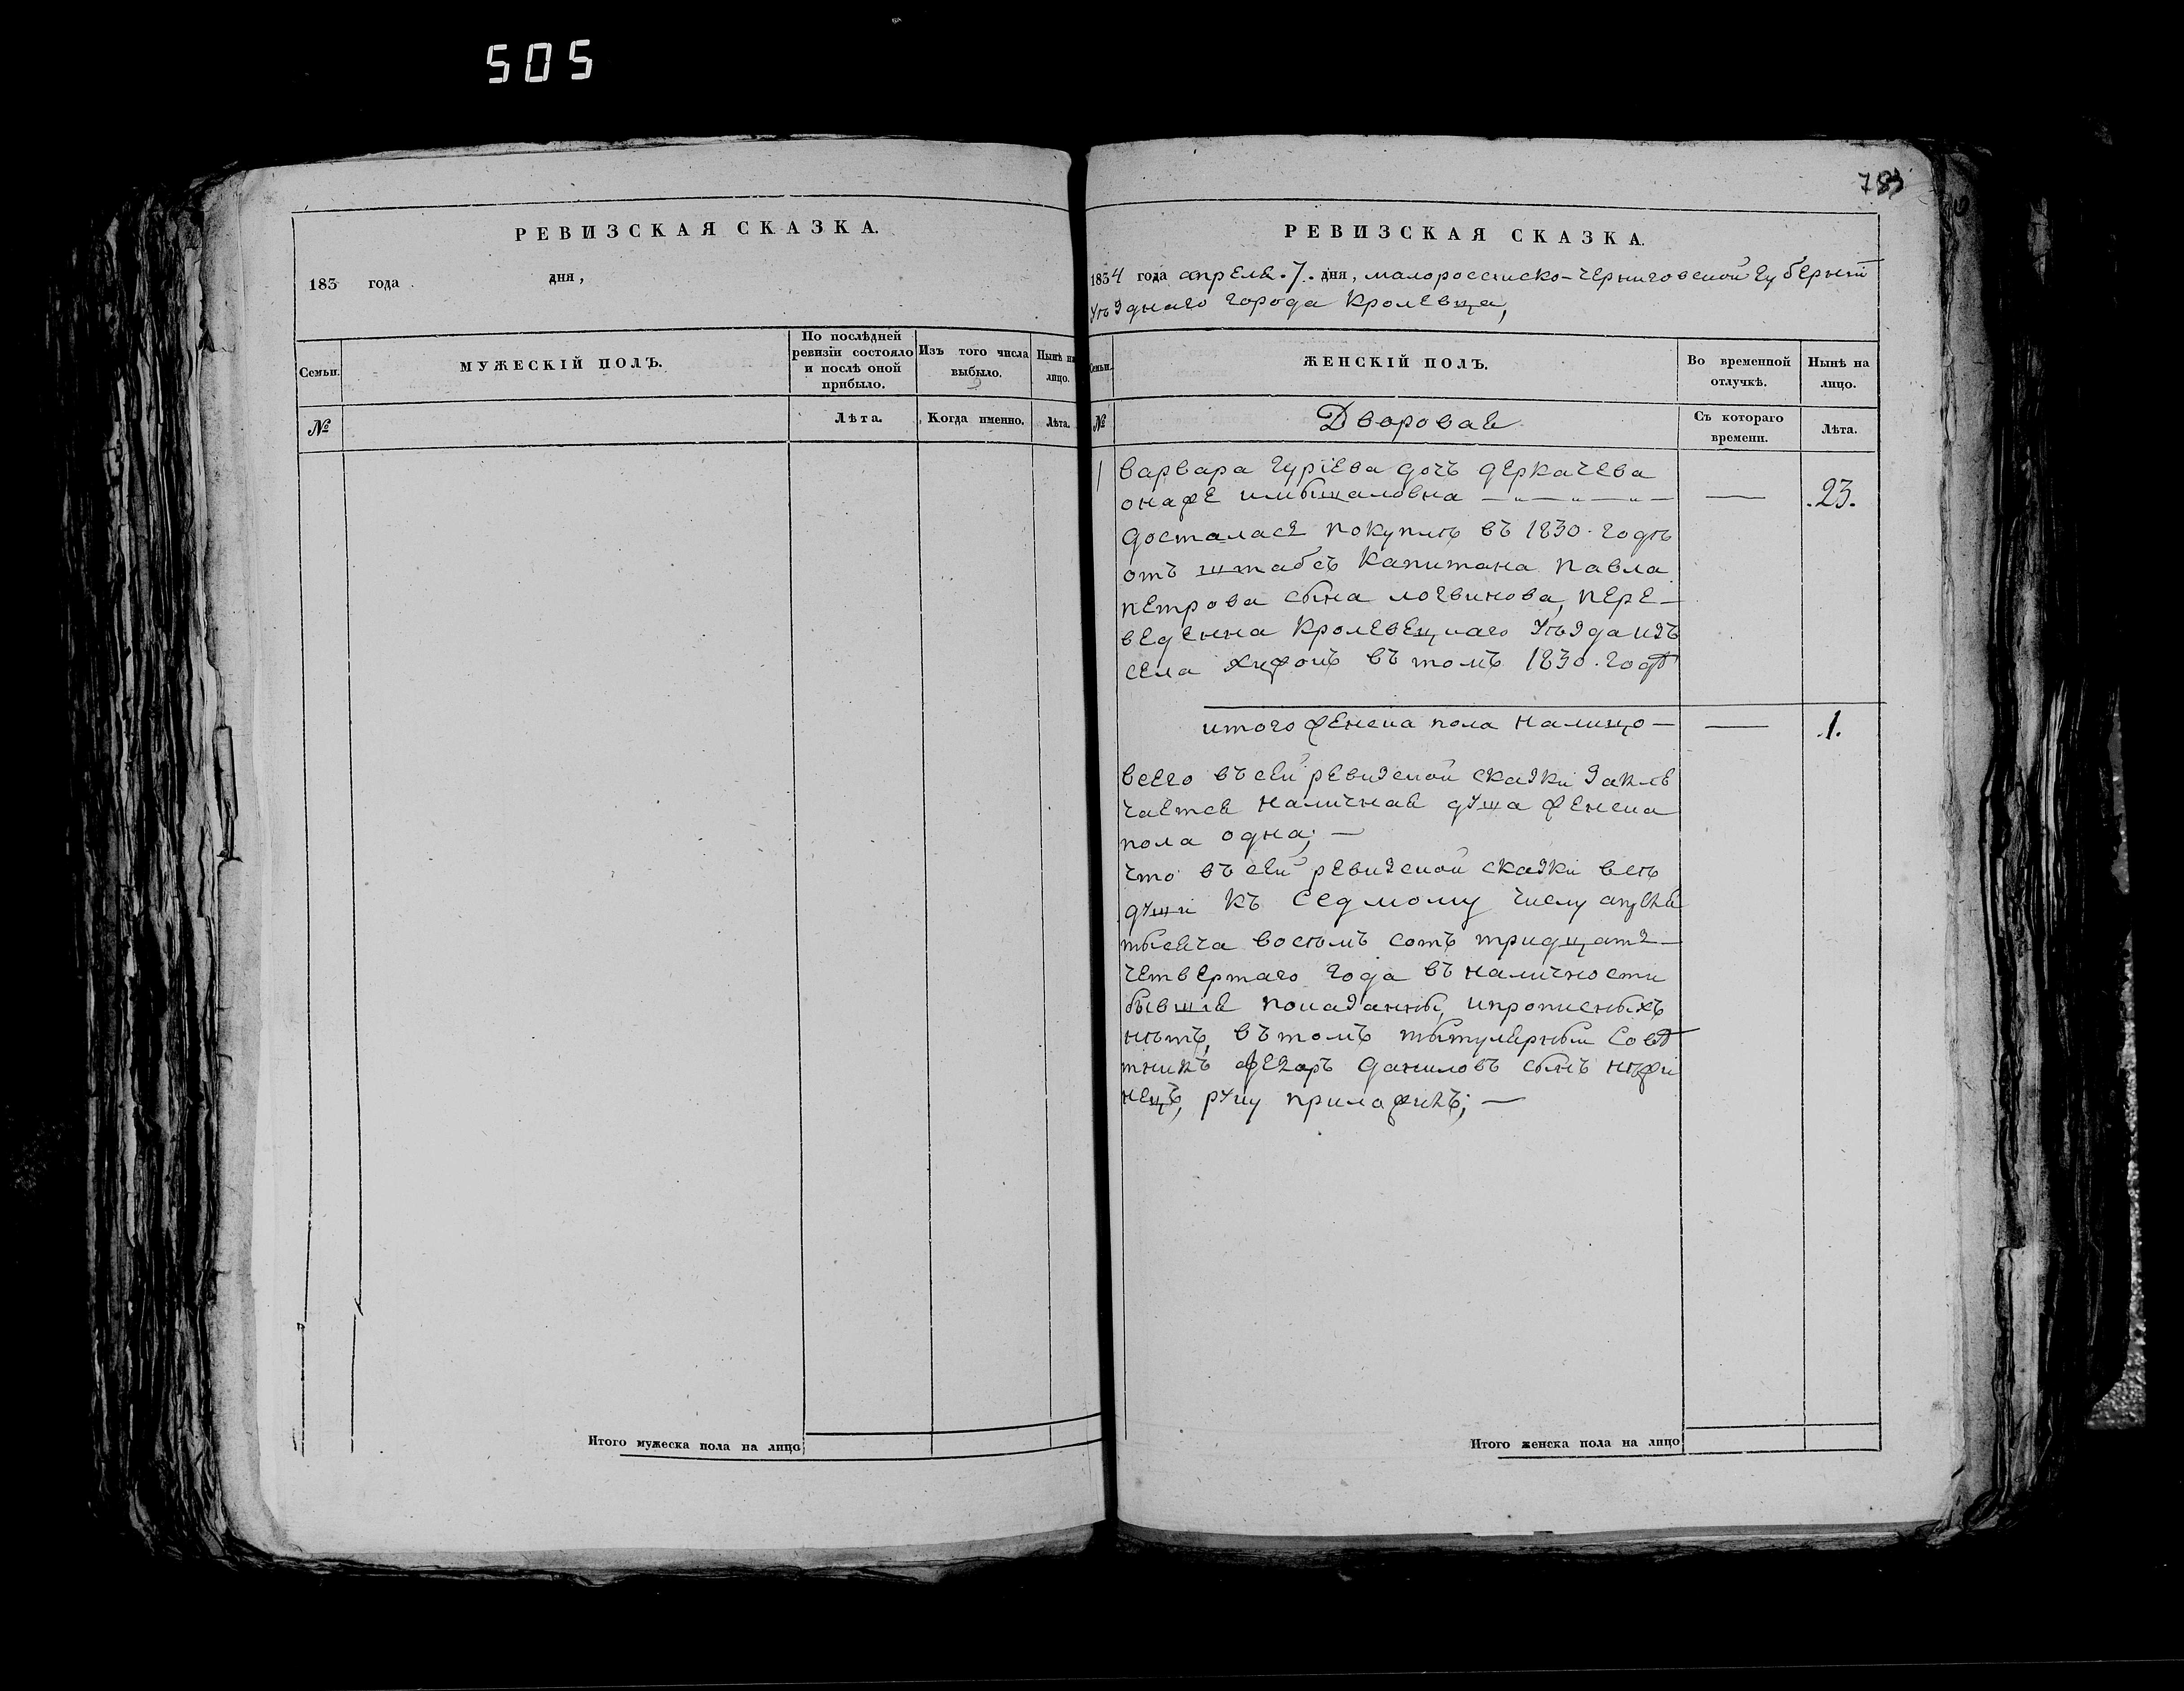 505
РЕВИЗСКАЯ СКАЗКА.
183 года дня,
Семьи.
МУЖЕСКІЙ ПОЛЪ.
По послѣдней ревизіи состояло и послѣ оной прибыло.
Изъ того числа выбыло.
Нынѣ на лицо.
№
Лѣта.
Когда именно.
Лѣта.
Итого мужеска пола на лицо
РЕВИЗСКАЯ СКАЗКА.
1834 года апреля .7. дня, малороссииско-черниговской губернїи
уѣзднаго города Кролевца,
Семьи.
ЖЕНСКІЙ ПОЛЪ.
Во временной отлучкѣ.
Нынѣ на лицо.
№
Дворовая
Съ котораго времени.
Лѣта.
1 варвара гурїева дочъ деркачева
онаже — „ — „ — „ — — .23.
досталася покупкѣ въ 1830. годѣ
отъ штабсъ Капитана павла
петрова сына логвинова, пере-
веденна Кролевецкаго уѣзда изъ
села въ томъ 1830. годѣ
итого женска пола налицо — — .1.
всего въ сей ревизской сказки заклю
чается наличная душа женска
пола одна; —
что въ сей ревизской сказки всѣ
души къ седмому числу апреля
тысяча восемъ сотъ тридцать-
четвертаго года въ наличности
бывшїе показанны, и прописныхъ
нѣтъ, въ томъ тытулярный Совѣ
тникъ даниловъ сынъ нѣжи
нецъ, руку приложилъ; —
Итого женска пола на лицо